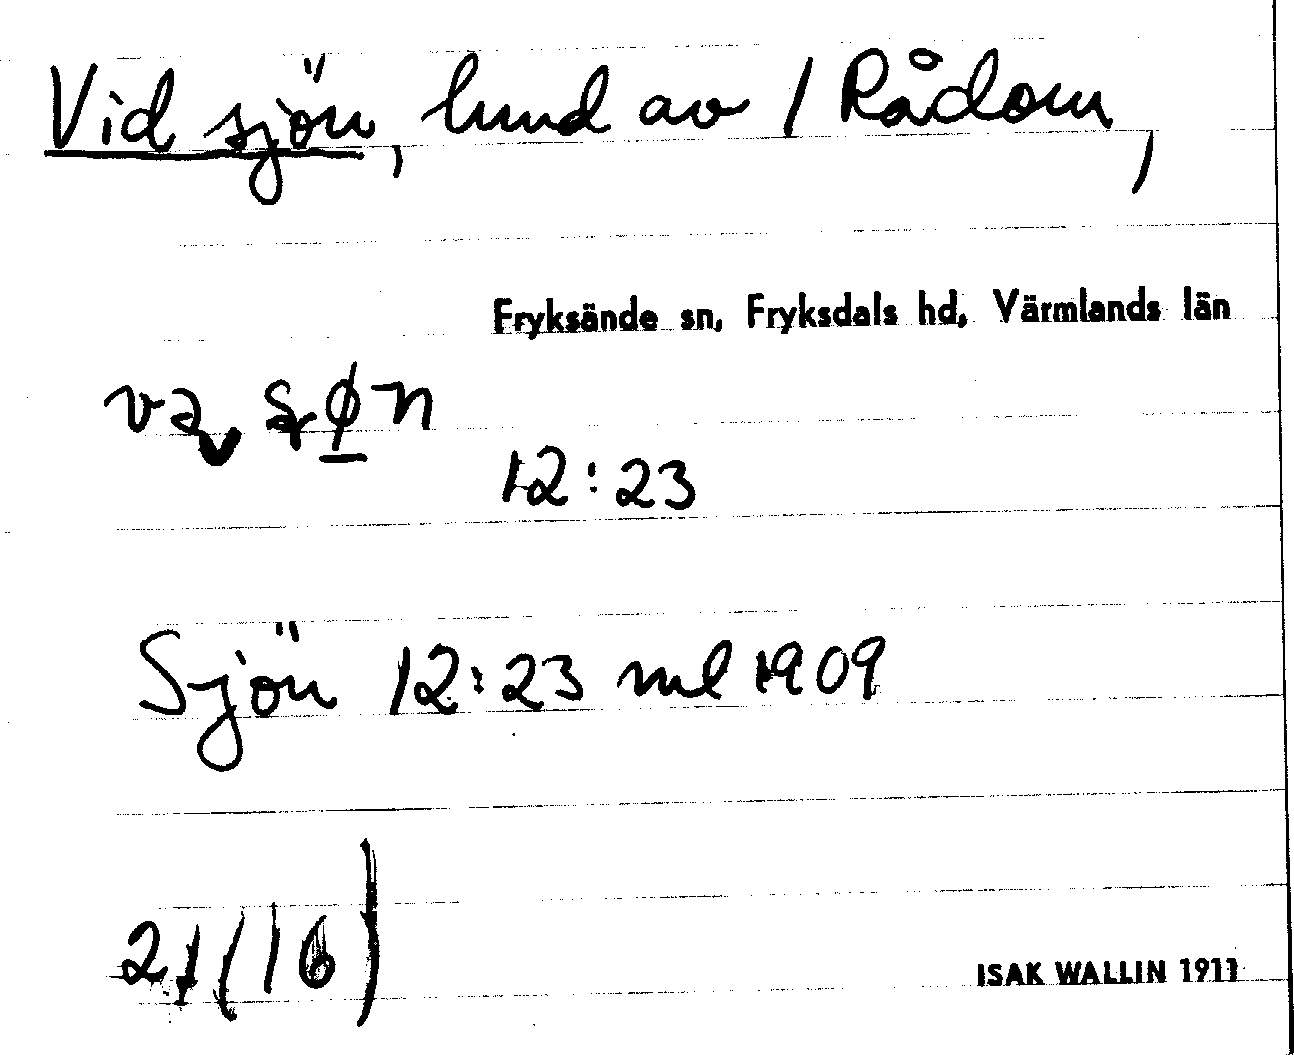 Vid sjön, lund av 1 Rådom,
Fryksände sn, Fryksdals hd, Värmlands län
12:23
Sjön 12:23 ml 1909
21 (16)
ISAK WALLIN 1911